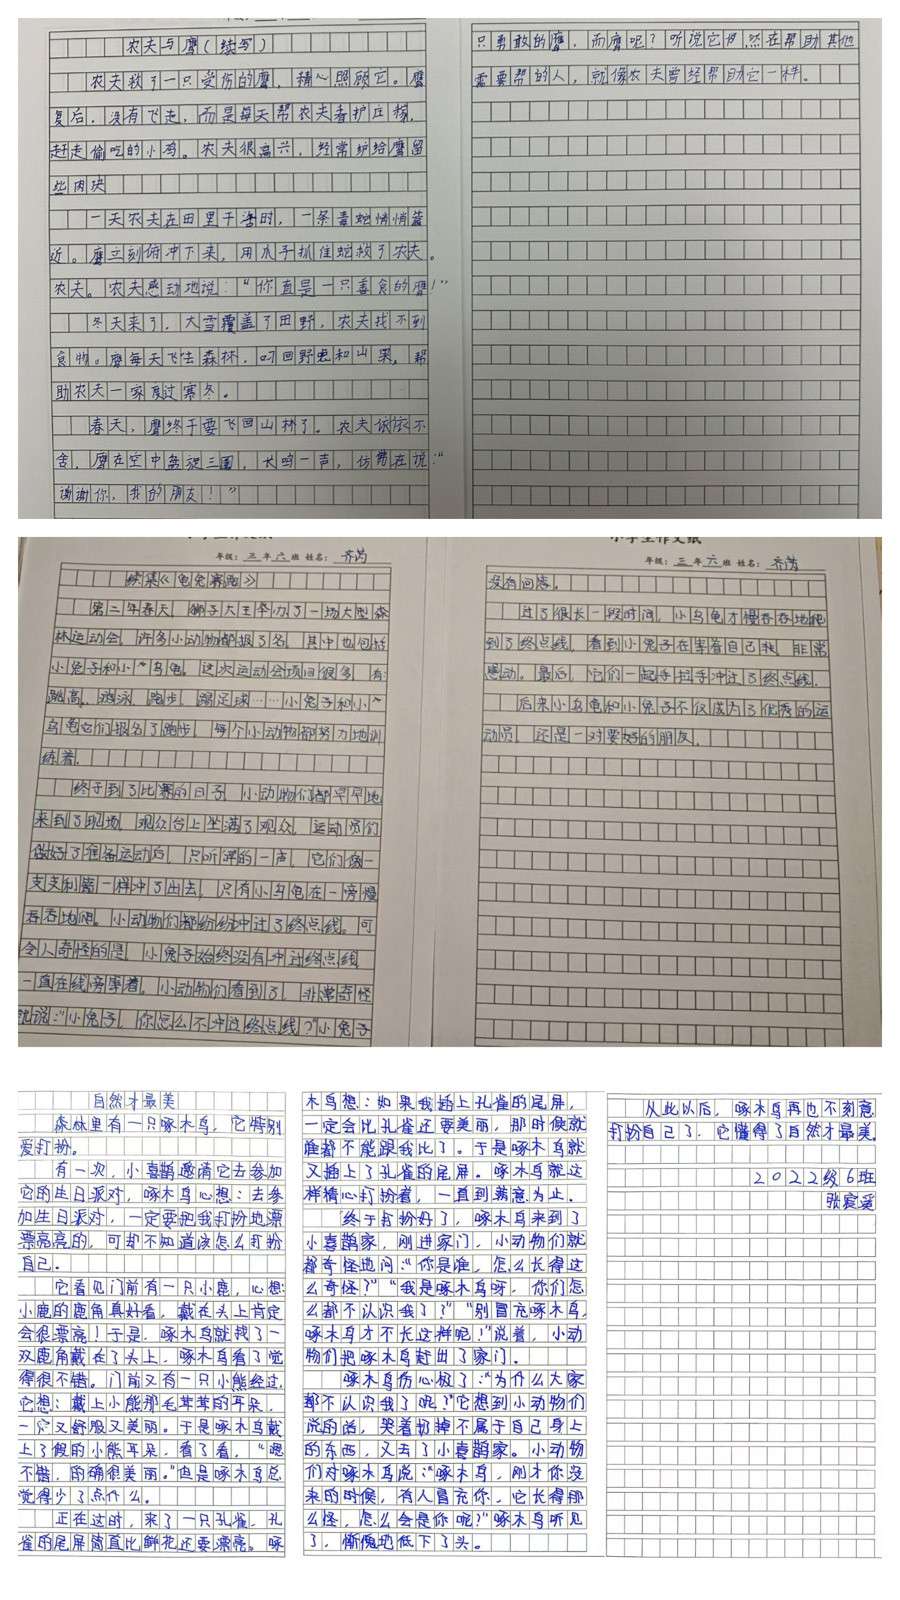 农夫与鹰(续写)
农夫救了一只受伤的鹰，精心照顾它。鹰
复后，没有飞走，而是每天帮农夫看护庄稼，
赶走偷吃的小鸡。农夫很高兴，经常护给鹰留
些肉块
一天农夫在田里干活时，一条毒蛇悄悄靠
近。鹰立刻俯冲下来，用爪子抓住蛇救了农夫。
农夫。农夫感动地说：“你直是一只善良的鹰！”
冬天来了，大雪覆盖了田野，农夫找不到
食物。鹰每天飞去森林，叼回野兔和山果，帮
助农夫一家度过寒冬。
春天，鹰终于要飞回山林了。农夫依依不
舍，鹰在空中盘旋三圈，长鸣一声，仿佛在说：“
谢谢你，我的朋友！”
只勇敢的鹰，而鹰呢？听说它仍然在帮助其他
需要帮的人，就像农夫曾经帮助它一样。
年级：三年六班 姓名：齐芮
续集《龟兔赛跑》
第二年春天，狮子大王举办了一场大型森
林运动会，许多小动物都报了名，其中也包括
小兔子和小乌龟。这次运动会项目很多，有：
跳高、游泳、跑步、踢足球……小兔子和小
乌龟它们报名了跑步，每个小动物都努力地训
练着。
终于到了比赛的日子，小动物们都早早地
来到了现场，观众台上坐满了观众，运动员们
做好了准备运动后，只听砰的一声，它们像一
支支利箭一样冲了出去，只有小乌龟在一旁慢
吞吞地爬。小动物们都纷纷冲过了终点线。可
令人奇怪的是，小兔子始终没有冲过终点线，
一直在线旁等着。小动物们看到了，非常奇怪
地说：“小兔子，你怎么不冲过终点线？”小兔子
小学生作文纸
年级：三年六班 姓名：齐芮
没有回答。
过了很长一段时间，小乌龟才慢吞吞地爬
到了终点线，看到小兔子在等着自己我，非常
感动。最后，它们一起手拉手冲过了终点线，
后来小乌龟和小兔子不仅成为了优秀的运
动员，还是一对要好的朋友，
自然才最美
森林里有一只啄木鸟，它特别
爱打扮。
有一次，小喜鹊邀请它去参加
它的生日派对，啄木鸟心想：去参
加生日派对，一定要把我打扮地漂
漂亮亮的，可却不知道该怎么打扮
自己。
它看见门前有一只小鹿，心想：
小鹿的鹿角真好看，戴在头上肯定
会很漂亮！于是，啄木鸟就找了一
双鹿角戴在了头上，啄木鸟看了觉
得很不错。门前又有一只小熊经过，
它想：戴上小熊那毛茸茸的耳朵，
一定又舒服又美丽。于是啄木鸟戴
上了假的小熊耳朵，看了看，“嗯
不错，的确很美丽。”但是啄木鸟总
觉得少了点什么。
正在这时，来了一只孔雀，孔
雀的尾屏简直比鲜花还要漂亮。啄
木鸟想：如果我插上孔雀的尾屏，
一定会比孔雀还要美丽，那时候就
谁都不能跟我比了。于是啄木鸟就
又插上了孔雀的尾屏。啄木鸟就这
样精心打扮着，一直到满意为止。
终于打扮好了，啄木鸟来到了
小喜鹊家，刚进家门，小动物们就
都奇怪地问：“你是谁，怎么长得这
么奇怪？”“我是啄木鸟呀，你们怎
么都不认识我了？”“别冒充啄木鸟，
啄木鸟才不长这样呢！”说着，小动
物们把啄木鸟赶出了家门。
啄木鸟伤心极了：“为什么大家
都不认识我了呢？”它想到小动物们
说的话，哭着扔掉不属于自己身上
的东西，又去了小喜鹊家。小动物
们对啄木鸟说：“啄木鸟，刚才你没
来的时候，有人冒充你，它长得那
么怪，怎么会是你呢？”啄木鸟听见
了，惭愧地低下了头。
从此以后，啄木鸟再也不刻意
打扮自己了，它懂得了自然才最美。
2022级6班
张宸溪